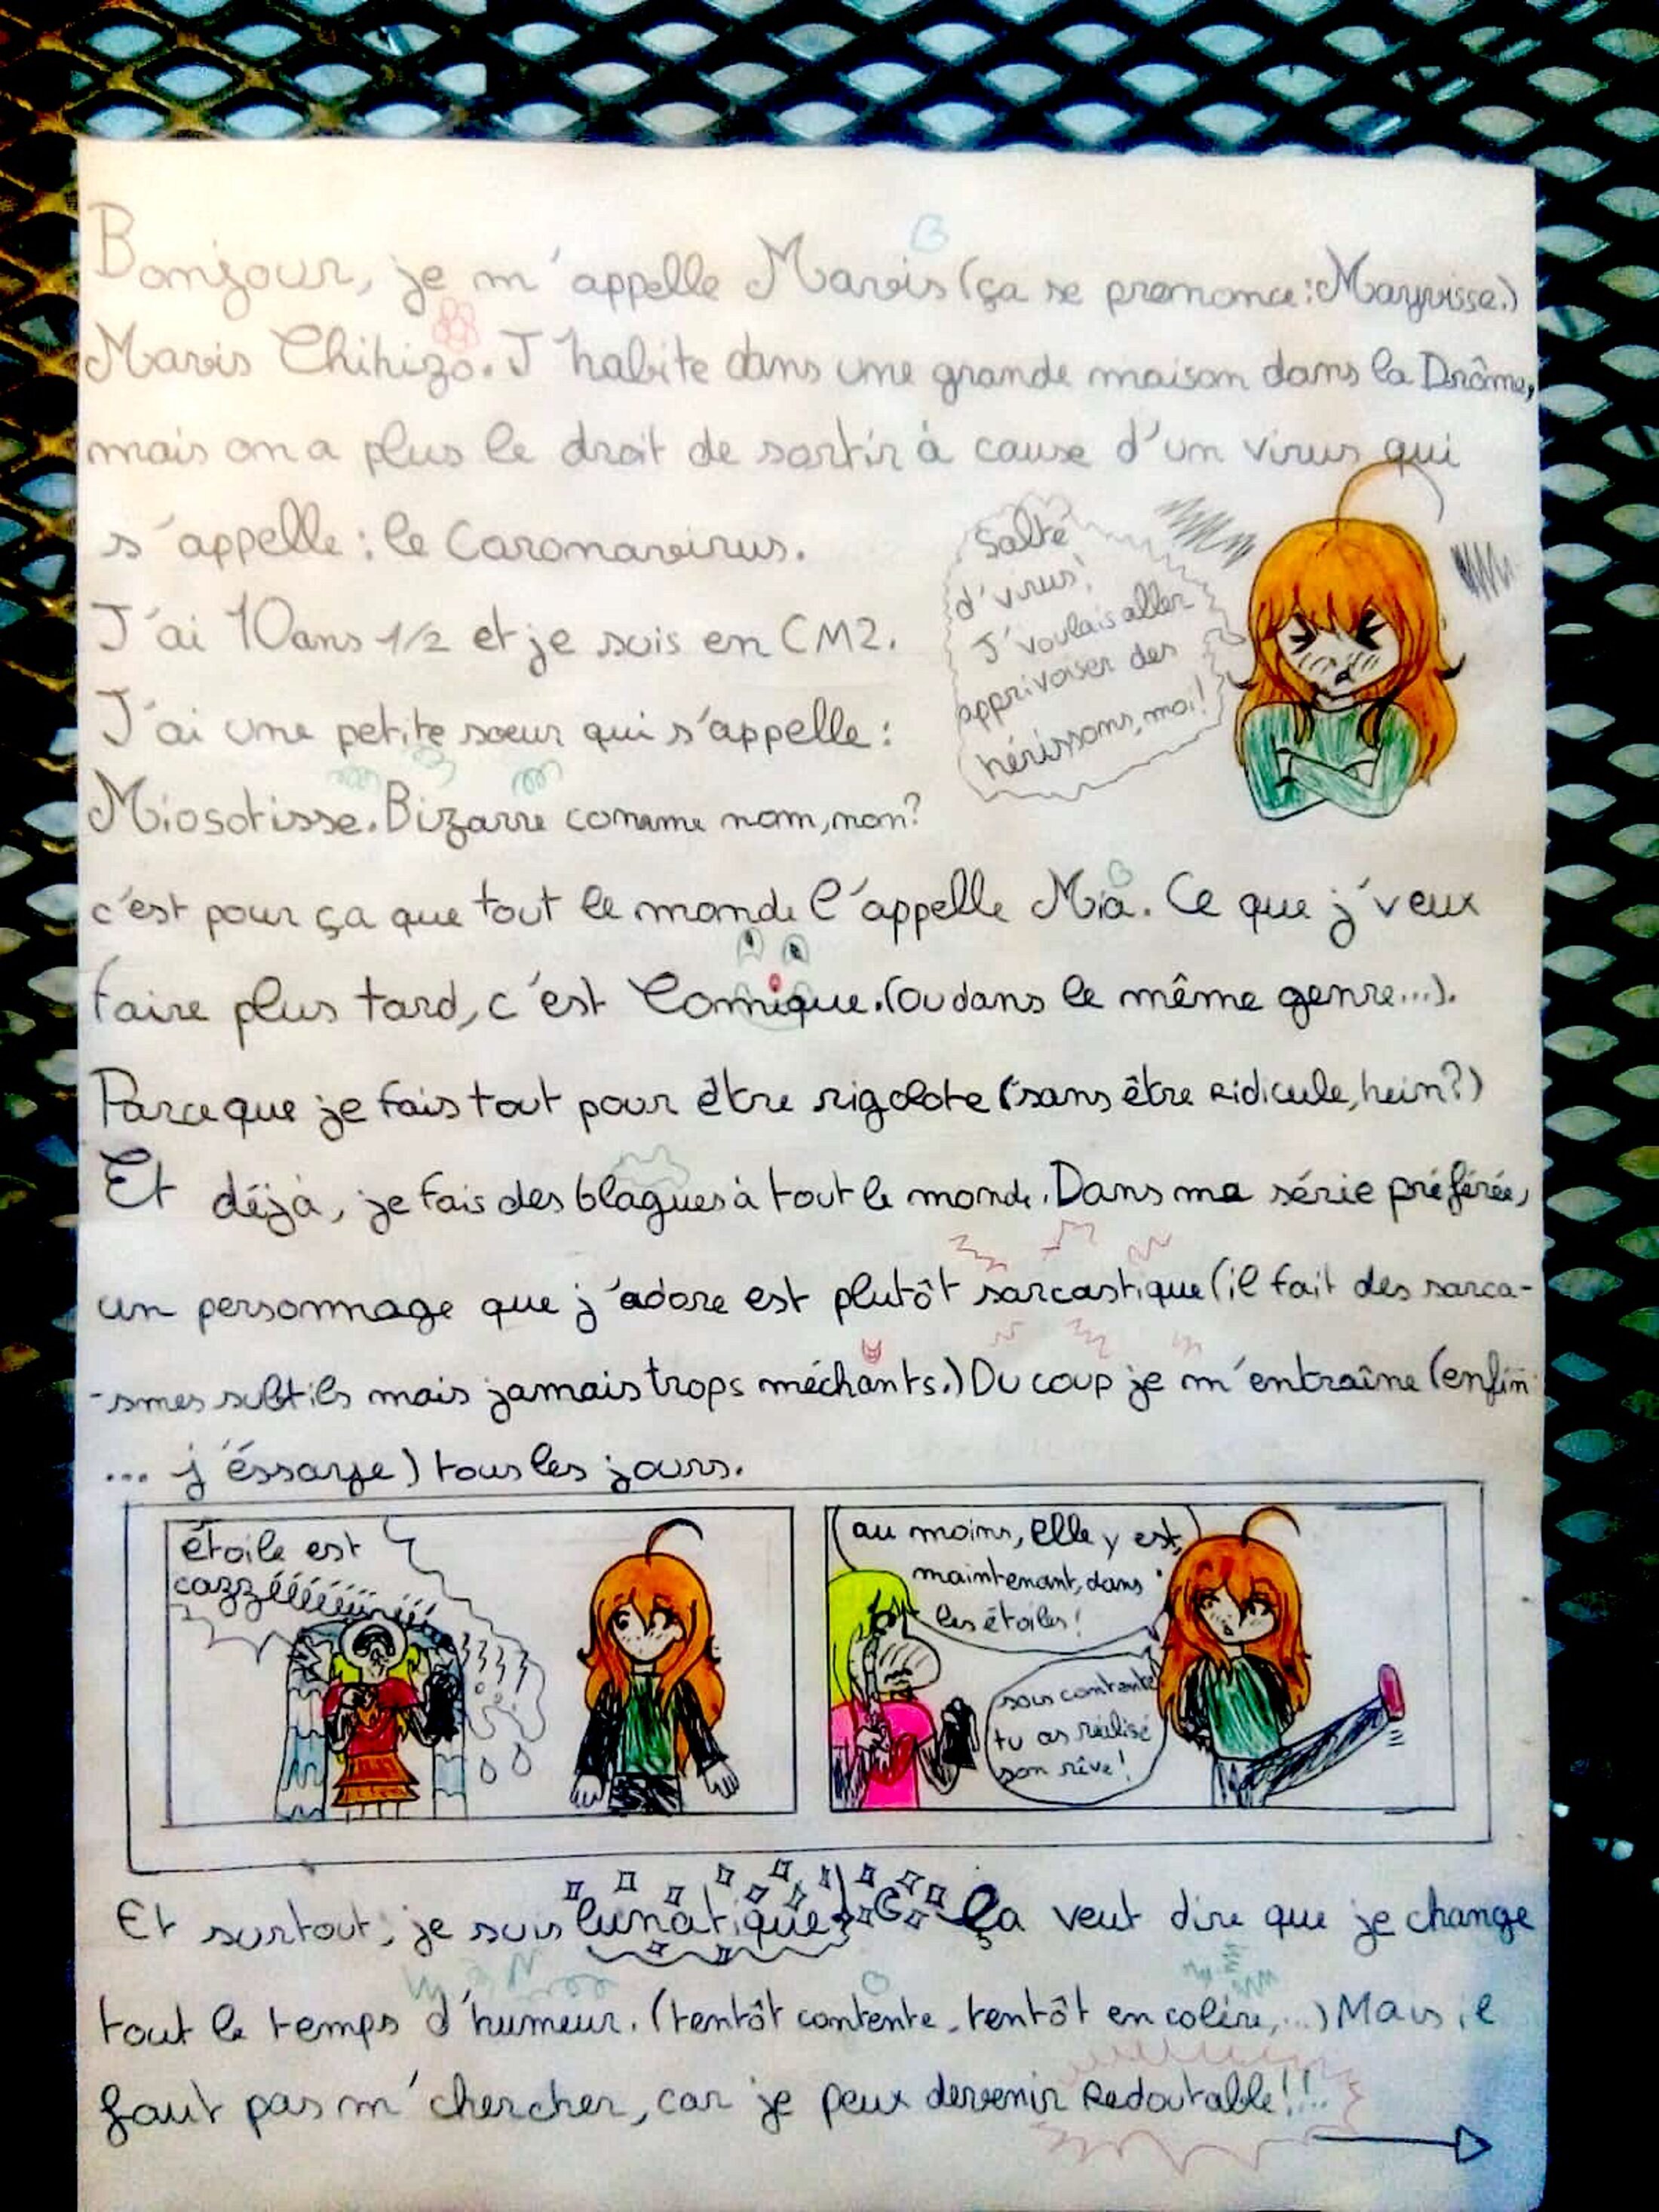 Bonjour, je m'appelle Mavis (ça se prononce: Mayvisse.)
Mavis Chihizo. J'habite dans une grande maison dans la Drôme,
mais on a plus le droit de sortir à cause d'un virus qui
s'appelle: le Coronavirus.
Salté
d'virus!
J'voulais aller
apprivoiser des
hérissons, moi!
J'ai 10 ans 1/2 et je suis en CM2.
J'ai une petite soeur qui s'appelle:
Miosotisse. Bizarre comme nom, non?
c'est pour ça que tout le monde l'appelle Mia. Ce que j'veux
faire plus tard, c'est Comique. (ou dans le même genre...).
Parce que je fais tout pour être rigolote (sans être Ridicule, hein?)
Et déjà, je fais des blagues à tout le monde. Dans ma série préférée,
un personnage que j'adore est plutôt sarcastique (il fait des sarca-
-smes subtils mais jamais trops méchants.) Du coup je m'entraîne (enfin
... j'éssaye) tous les jours.
étoile est
cazzéééééééééé
au moins, elle y est,
maintenant, dans
les étoiles!
sois contente
tu as réalisé
son rêve!
Et surtout, je suis lunatique. Ça veut dire que je change
tout le temps d'humeur. (tentôt contente, tentôt en colère,...) Mais il
faut pas m'chercher, car je peux devenir Redoutable!!!